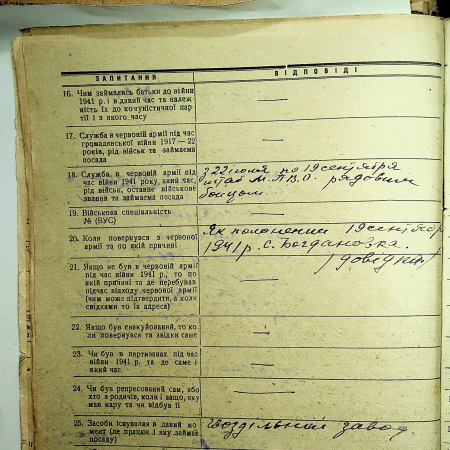 ЗАПИТАННЯ
ВІДПОВІДІ
16. Чим займались батьки до війни
1941 р. і в даний час та належ-
ність їх до комуністичної пар-
тії і в якого часу
—
17. Служба в червоній армії під час
громадянської війни 1917 — 22
років, рід військ та займаєма
посада
—
18. Служба в червоній армії під
час війни 1941 року, який час,
рід військ, останнє військове
звання та займаєма посада
з 22 июля по 19 сентября
штаб М.П.В.О. рядовим
бойцом.
19. Військова спеціальність
№ (ВУС)
—
20. Коли повернувся з червоної
армії та по якій причині
Як полонений 19 сентября
1941 р. с. Богдановка.
21. Якщо не був в червоній армії
під час війни 1941 р., то по
якій причині та де перебував
підчас відходу червоної армії
(чим може підтвердити, а коли
свідками то їх адреса)
—
22. Якщо був евакуйований, то ко-
ли повернувся та звідки саме
—
23. Чи був в партизанах під час
війни 1941 р. та де саме і
який час
—
24. Чи був репресований сам, або
хто з родичів, коли і защо, яку
мав кару та чи відбув її
—
25. Засоби існування в даний мо-
мент (де працює і яку займає
посаду)
Гвоздільний завод.